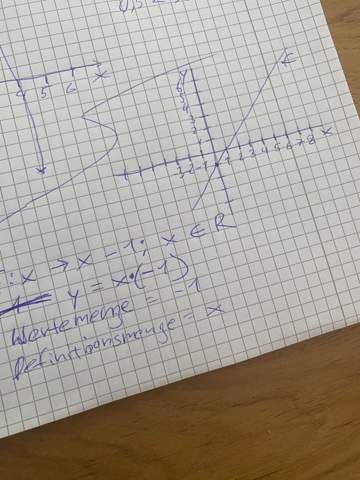 0,5
4 5 6 x
y
3 -2 -1
1 2 3 4 5 6 7 8 x
: x → x - 1; x ∈ R
y = x·(-1)
Wertemenge = -1
Definitionsmenge = x